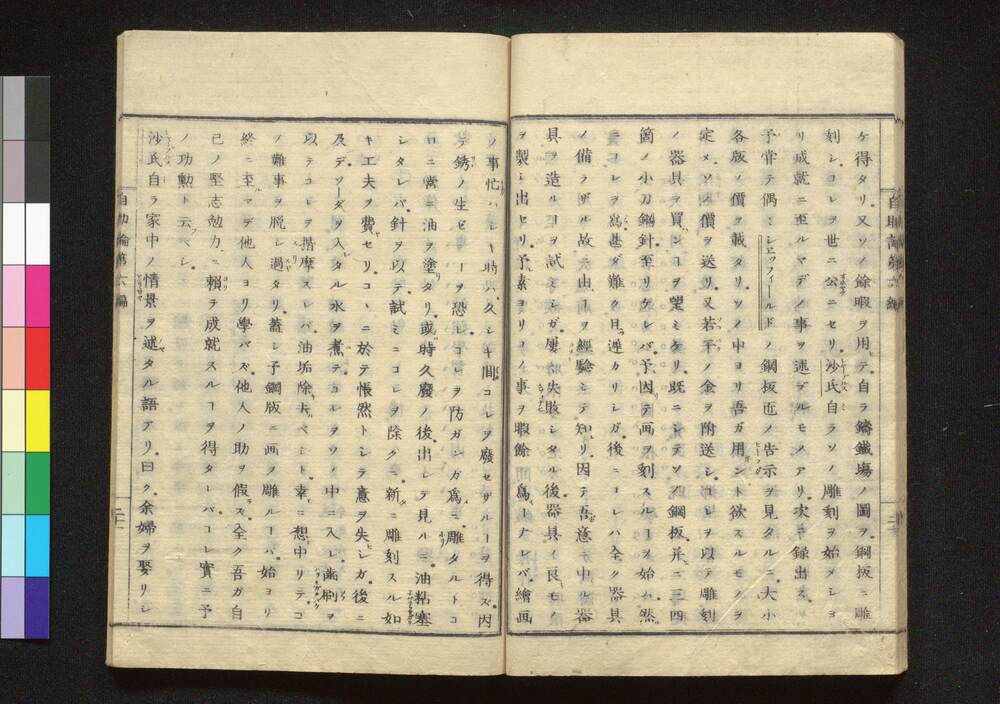 ケ得タリ又ソノ餘暇ヲ用テ自ラ鑄鐵場ノ圖ヲ鋼板ニ雕
刻シコレヲ世ニ公ニセリ沙氏自ラソノ雕刻ヲ始メショ
リ成就ニ至ルマデノ事ヲ述デルモノアリ次ニ録出ス
予甞テ偶ミシエッフィールドノ鋼板匠ノ告示ヲ見タルニ大小
各版ノ價ヲ載タリソノ中ヨリ吾ガ用ント欲スルモノヲ
定メソノ價ヲ送リ又若干ノ金ヲ附送シコレヲ以テ雕刻
ノ器具ヲ買ンコヲ望ミケリ既ニシテソノ鋼板并ニ三四
箇ノ小刀鋼針至リケレバ予因テ画ヲ刻スルコヲ始ム然
ニコレヲ寫甚ダ難ク日連カリシガ後ニコレハ全ク器具
ノ備ラザル故テ由コヲ經驗シテ知リ因テ吾意ニ中ル器
具ヲ造ルコヲ試ミシガ屢失敗シタル後器具ノ良モノ
ヲ製ミ出セリ予素ヨリコノ事ヲ暇餘ニ爲コナレバ繪画
ノ事忙ハシキ時ハ久シキ間コレヲ廢セザルコヲ得ズ内
ヲ銹ノ生ゼンコヲ恐レコレヲ防ガンガ爲ニ雕タルトコ
ロニ常ニ油ヲ塗リタリ或時久廢ノ後出シテ見ルニ油粘塞
シタレバ針ヲ以テ試ミニコレヲ除クニ新ニ雕刻スル如
キ工夫ヲ費セリコヽニ於テ悵然トシテ意ヲ失シガ後ニ
及デソーダヲ入タル水ヲ煮テコレヲソノ中ニ入レ歯刷ヲ
以テコレヲ揩摩スレバ油垢除去ベシト幸ニ想中リテコ
ノ難事ヲ脱シ過タリ蓋シ予鋼版ニ画ノ雕ルコハ始ヨリ
終ニ至マデ他人ヨリ學バズ他人ノ助ヲ假ズ全ク吾ガ自
己ノ堅志勉力ニ賴ヲ成就スルコヲ得タレバコレ實ニ予
ノ功勳ト云ベシ
沙氏自ラ家中ノ情景ヲ述タル語アリ曰ク余婦ヲ娶リシ
自助論第六編
二十一